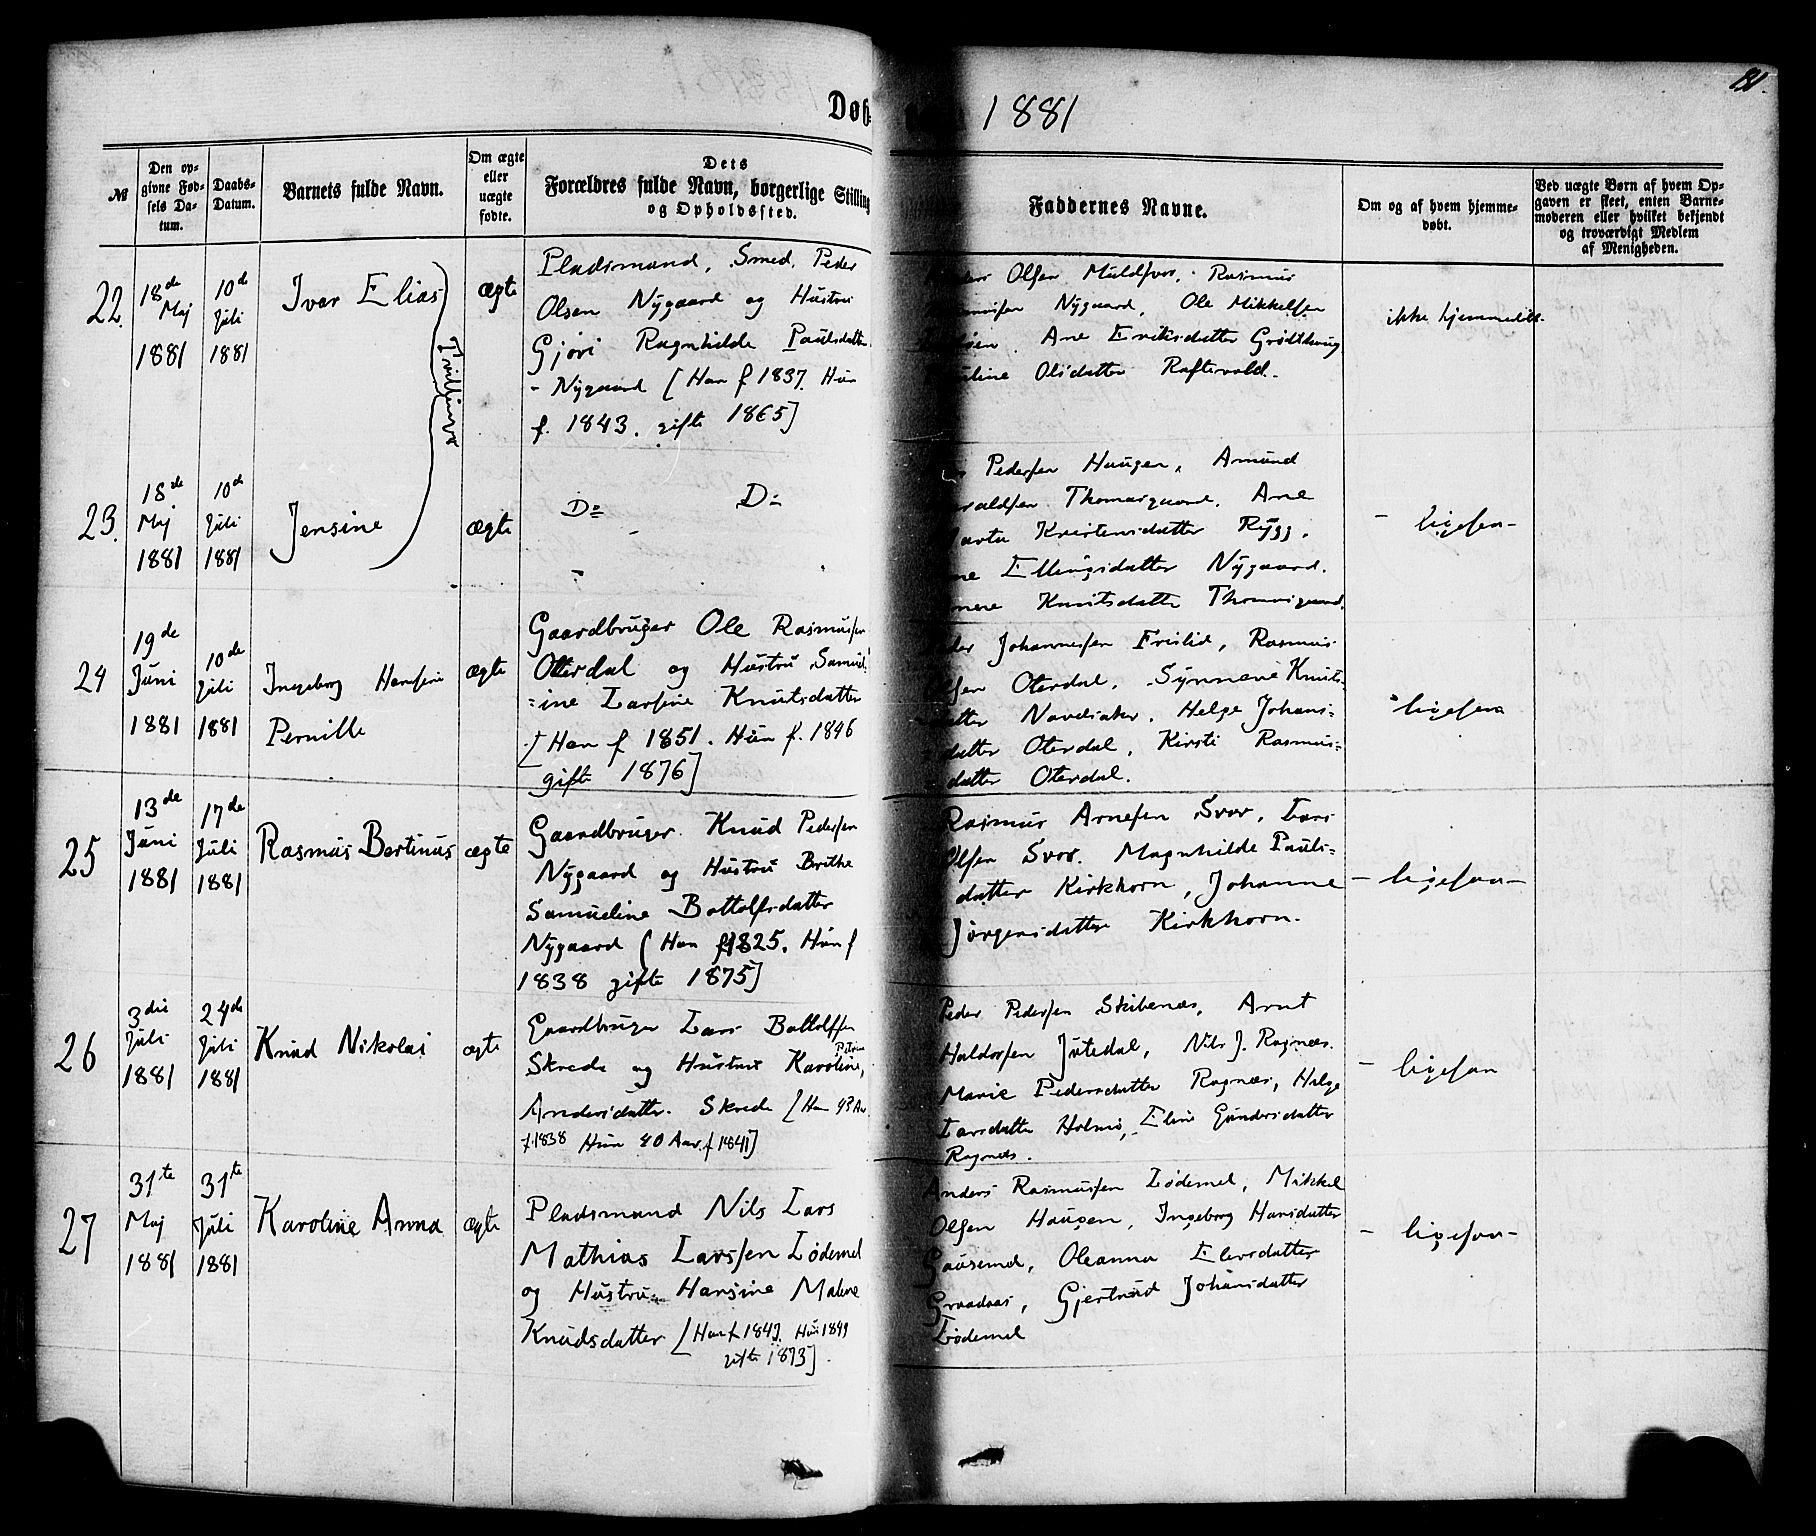 Døb-
1881
181.
№
Den op-
givne Fød-
sels Da-
tum.
Daabs-
Datum.
Barnets fulde Navn.
Om ægte
eller
uægte
fødte.
Dets
Forældres fulde Navn, borgerlige Stilling
og Opholdssted.
Faddernes Navne.
Om og af hvem hjemme-
døbt.
Ved uægte Børn af hvem Op-
gaven er skeet, enten Barne-
moderen eller hvilket bekjendt
og troværdigt Medlem
af Menigheden.
22.
18de
Maj
1881
10de
Juli
1881
Ivar Elias
Tvillinger
ægte
Pladsmand, Smed, Peder
Olsen Nygaard og Hustru
Gjøri Ragnhilde Paulsdatter
- Nygaard [Han f 1837. Hun
f. 1843. gifte 1865]
Olsen Muldsvor, Rasmus
Nygaard, Ole Mikkelsen
Ane Eriksdatter Grødthaug
Olsdatter Raftevold.
ikke hjemmedøbt.
23.
18de
Maj
1881
10de
Juli
1881
Jensine
ægte
Do Do
Pedersen Haugen, Amund
Thomasgaard, Ane
Kristensdatter Rygg,
Ellingsdatter Nygaard.
Knutsdatter Thomasgaard.
- ligesaa -
24
19de
Juni
1881
10de
Juli
1881
Ingeborg Hansine
Pernille
ægte
Gaardbruger Ole Rasmussen
Oterdal og Hustru Samuel-
=ine Larsine Knutsdatter
[Han f 1851. Hun f. 1846
gifte 1876]
Johannessen Frislid, Rasmus
Olsen Oterdal, Synneve Knuts-
datter Navelsaker, Helge Johans-
datter Oterdal, Kirsti Rasmus-
datter Oterdal.
- ligesaa
25
13de
Juni
1881
17de
Juli
1881
Rasmus Bertinus
ægte
Gaardbruger Knud Pedersen
Nygaard og Hustru Brithe
Samueline Bottolfsdatter
Nygaard (Han f 1825. Hun f
1838 gifte 1875]
Rasmus Arnesen Svor, Lars
Olsen Svor. Magnhilde Pauls-
datter Kirkhorn, Johanne
Jørgensdatter Kirkhorn.
- ligesaa -
26
3die
Juli
1881
24de
Juli
1881
Knud Nikolai
ægte
Gaardbruger Lars Bottolfsen
Skrede og Hustru Karoline Petrine,
Andersdatter. Skrede [Han 43 Aar
f. 1838 Hun 40 Aar. f 1841]
Peder Pedersen Skibenæs, Arnt
Haldorsen Jutedal, Nils J. Ragnæs.
Marie Pedersdatter Ragnæs, Helge
Larsdatter Holmø, Eline Gundersdatter
Ragnæs.
- ligesaa
27
31te
Maj
1881
31te
Juli
1881
Karoline Anna
ægte
Pladsmand Nils Lars
Mathias Larssen Lødemel
og Hustru Hansine Malene
Knudsdatter [Han f. 1847. Hun 1849
gifte 1873].
Anders Rasmussen Lødemel, Mikkel
Olsen Haugen, Ingeborg Hansdatter
Gausemel, Oleanna Eliasdatter
Graadaas, Gjertrud Johansdatter
Lødemel
- ligesaa -